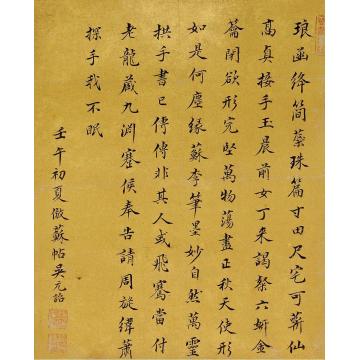 琅函絳簡蘂珠篇寸田尺宅可蘄仙
高真接手玉晨前女丁來謁粲六妍金
籥閉欲形完堅萬物蕩盡正秋天使形
如是何塵緣蘇李筆墨妙自然萬靈
拱手書已傳傳非其人或飛騫當付
老龍藏九淵蹇侯奉告請周旋緯蕭
探手我不眠
壬午初夏倣蘇帖吳元詒